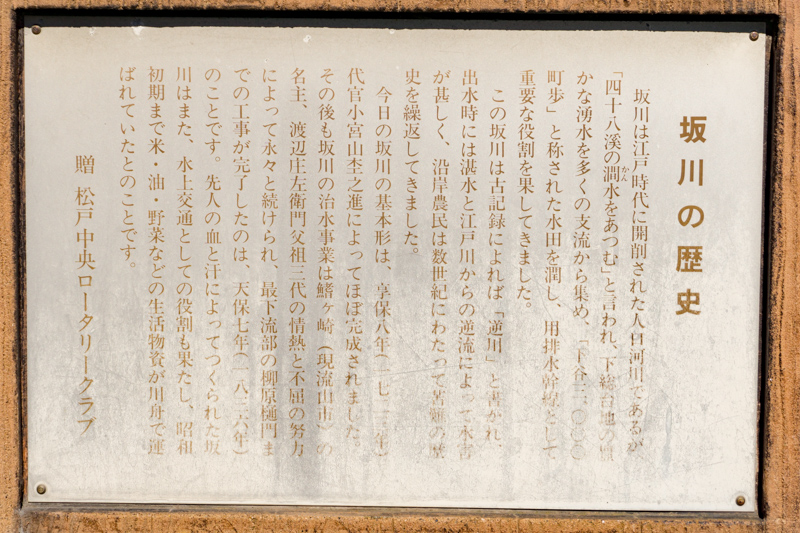 坂川の歴史
坂川は江戸時代に開削された人口河川であるが、
「四十八溪の澗水をあつむ」と言われ、下総台地の豊
かん
かな湧水を多くの支流から集め、「下谷三、〇〇〇
町歩」と称された水田を潤し、用排水幹線として
重要な役割を果してきました。
この坂川は古記録によれば「逆川」と書かれ、
出水時には湛水と江戸川からの逆流によって水害
が甚しく、沿岸農民は数世紀にわたって苦難の歴
史を繰返してきました。
今日の坂川の基本形は、享保八年（一七二三年）
代官小宮山杢之進によってほぼ完成されました。
その後も坂川の治水事業は鰭ヶ崎（現流山市）の
名主、渡辺庄左衛門父祖三代の情熱と不屈の努力
によって永々と続けられ、最下流部の柳原樋門ま
での工事が完了したのは、天保七年（一八三六年）
のことです。先人の血と汗によってつくられた坂
川はまた、水上交通としての役割も果たし、昭和
初期まで米・油・野菜などの生活物資が川舟で運
ばれていたとのことです。
贈 松戸中央ロータリークラブ